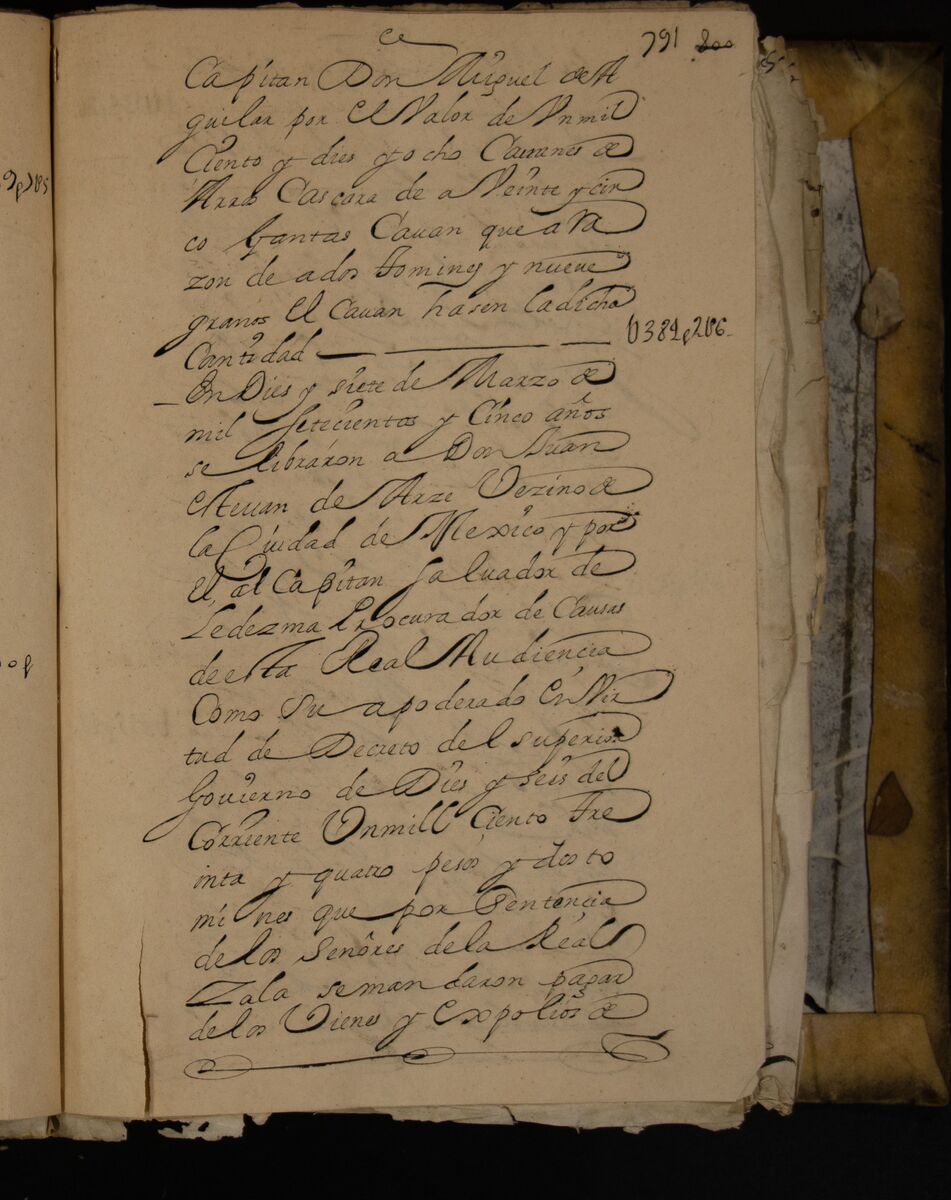 791 800
Capitan Don Miguel de A
guilar por El Valor de Vnmil
Ciento y dies y ocho Cauanes de
Arros Cascara de a Veinte y cin
co Gantas Cauan que a ra
zon de ados tomines y nueve
granos El Cauan hasen ladicha
Cantidad 0384p2t06
En Dies y siete de Marzo de
mil setecientos y Cinco años
se libraron a Don Juan
esteuan de Arze Vezino de
la Ciudad de Mexico y por
El, al Capitan saluador de
Ledezma Procurador de Causas
de esta Real Audiencia
Como su apoderado En Vir
tud de Decreto del superior
Govierno de Dies y seis del
Corriente Vnmill Ciento tre
inta y quatro pesos y dos to
mines que por Sentencia
de los Señores de la Real
Zala se mandaron pagar
de los Vienes y Expolios de